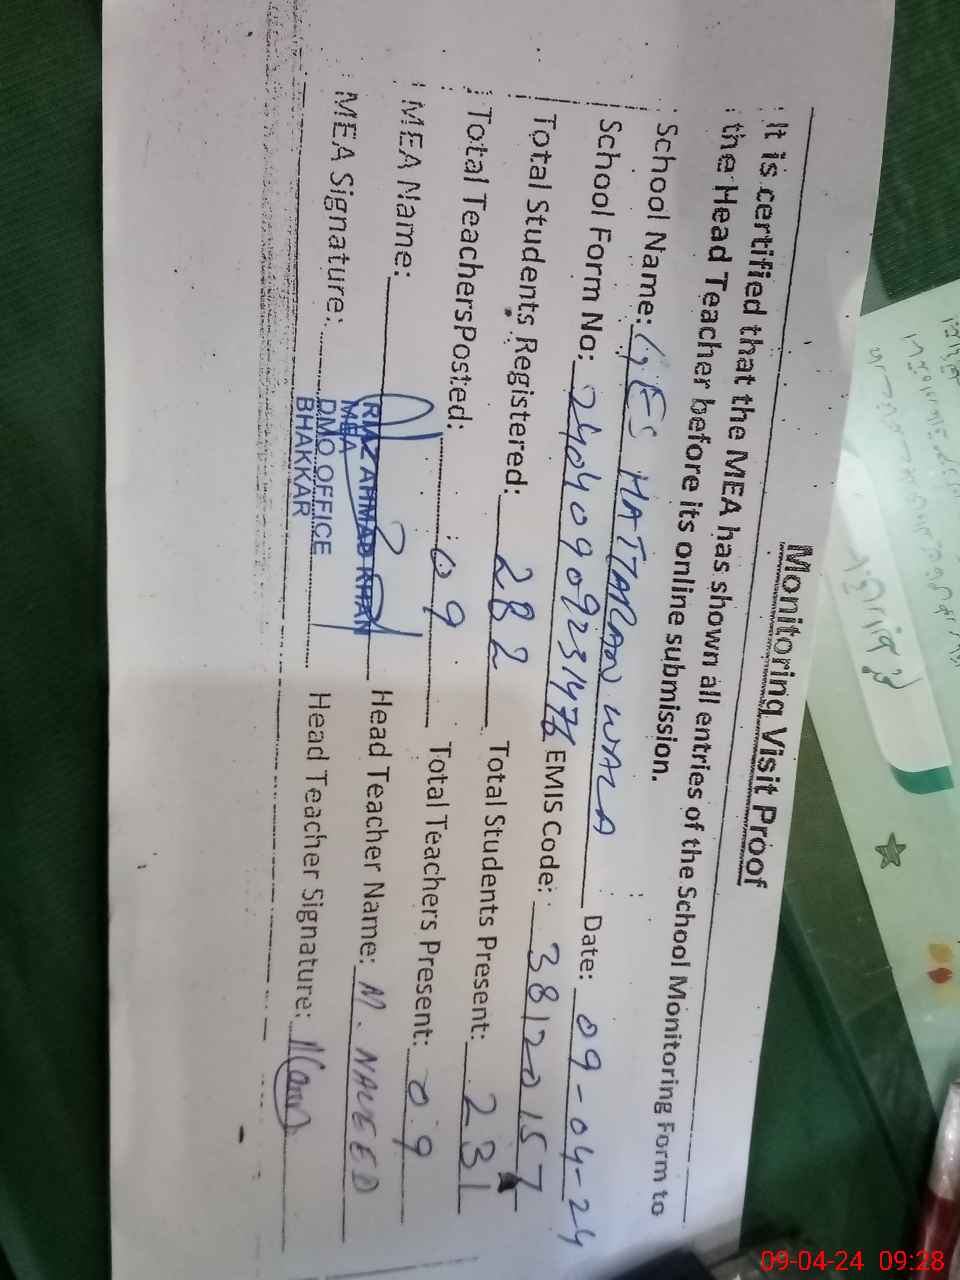 Monitoring Visit Proof
It is certified that the MEA has shown all entries of the School Monitoring Form to
the Head Teacher before its online submission.
School Name: GES HATTARAN WALA Date: 09-04-24
School Form No: EMIS Code: 38120157
Total Students Registered: 282 Total Students Present: 231
Total TeachersPosted: 09 Total Teachers Present: 09
MEA Name: RIAZ AHMAD KHAN Head Teacher Name: M. NAVEED
MEA
MEA Signature: DMO OFFICE Head Teacher Signature:
BHAKKAR
09-04-24 09:28